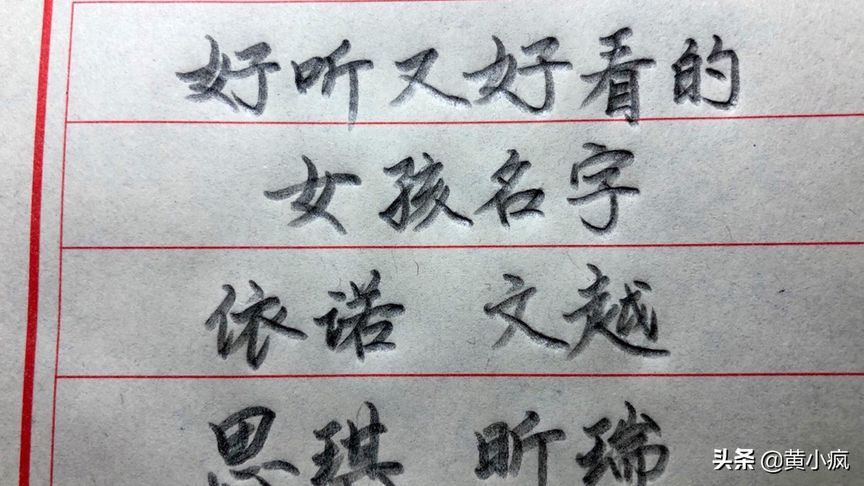 好听又好看的
女孩名字
依诺 文越
思琪 昕瑞
头条 @黄小疯